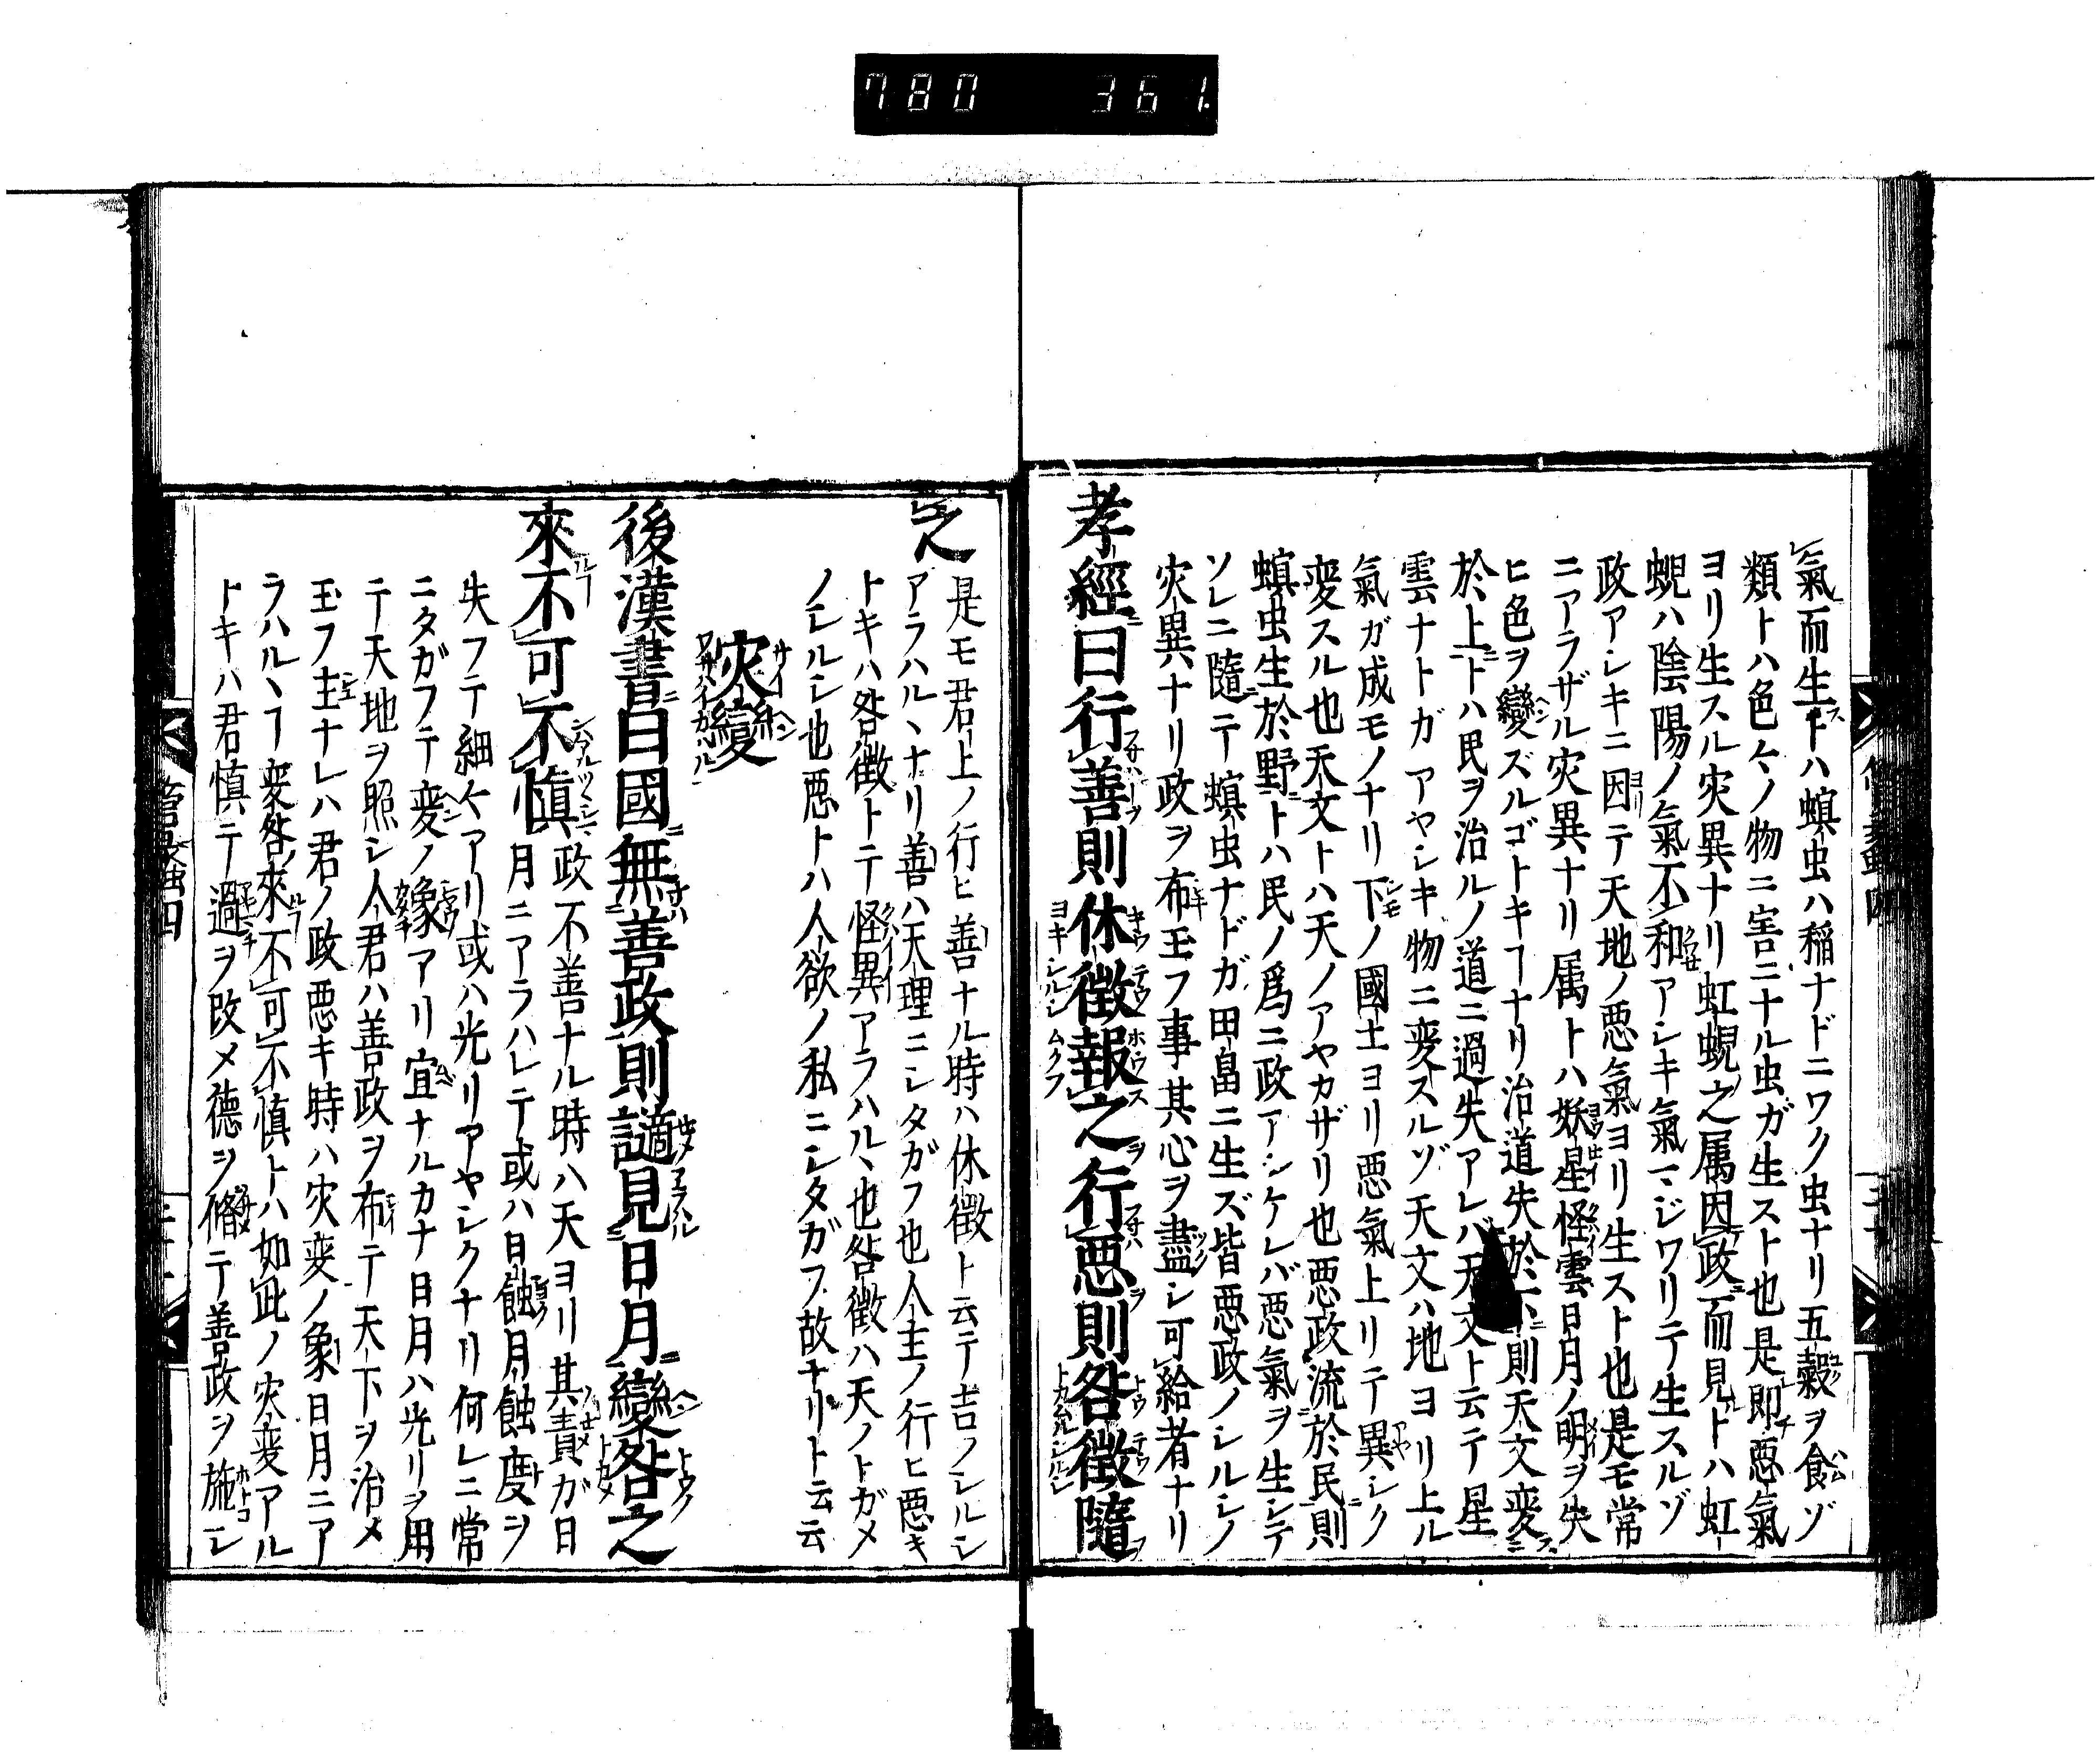 780 361.
氣而生トハ螟虫ハ稲ナドニワク虫ナリ五穀ヲ食ゾ
類トハ色々ノ物ニ害ニナル虫ガ生スト也是即悪氣
ヨリ生スル灾異ナリ虹蜺之属因政而見トハ虹
蜺ハ陰陽ノ氣不和アシキ氣マジワリテ生スルゾ
政アシキニ因テ天地ノ悪氣ヨリ生スト也是モ常
ニアラザル灾異ナリ属トハ妖星怪雲日月ノ明ヲ失
ヒ色ヲ變ズルゴトキヿナリ治道失於下則天文変
於上トハ民ヲ治ルノ道ニ過失アレバ天文ト云テ星
雲ナトガアヤシキ物ニ変スルゾ天文ハ地ヨリ上ル
氣ガ成モノナリ下ノ國土ヨリ悪氣上リテ異シク
変スル也天文トハ天ノアヤカザリ也悪政流於民則
螟虫生於野トハ民ノ爲ニ政アシケレバ悪氣ヲ生シテ
ソレニ隨テ螟虫ナドガ田畠ニ生ズ皆悪政ノシルシノ
灾異ナリ政ヲ布玉フ事其心ヲ盡シ可給者ナリ
孝經曰行善則休徴報之行悪則咎徴隨
之
是モ君上ノ行ヒ善ナル時ハ休徴ト云テ吉ノシルシ
アラハルヽナリ善ハ天理ニシタガフ也人主ノ行ヒ悪キ
トキハ咎徴トテ怪異アラハルヽ也咎徴ハ天ノトガメ
ノシルシ也悪トハ人欲ノ私ニシタガフ故ナリト云云
灾變
後漢書曰國無善政則謫見日月變咎之
來不可不慎
政不善ナル時ハ天ヨリ其責ガ日
月ニアラハレテ或ハ日蝕月蝕度ヲ
失フテ細ケアリ或ハ光リアヤシクナリ何レニ常
ニタガフテ変ノ象アリ宜ナルカナ日月ハ光リヲ用
テ天地ヲ照シ人君ハ善政ヲ布テ天下ヲ治メ
玉フ主ナレハ君ノ政悪キ時ハ灾変ノ象日月ニア
ラハルヽヿ変咎來不可不慎トハ如此ノ灾変アル
トキハ君慎テ過ヲ改メ徳ヲ脩テ善政ヲ施シ